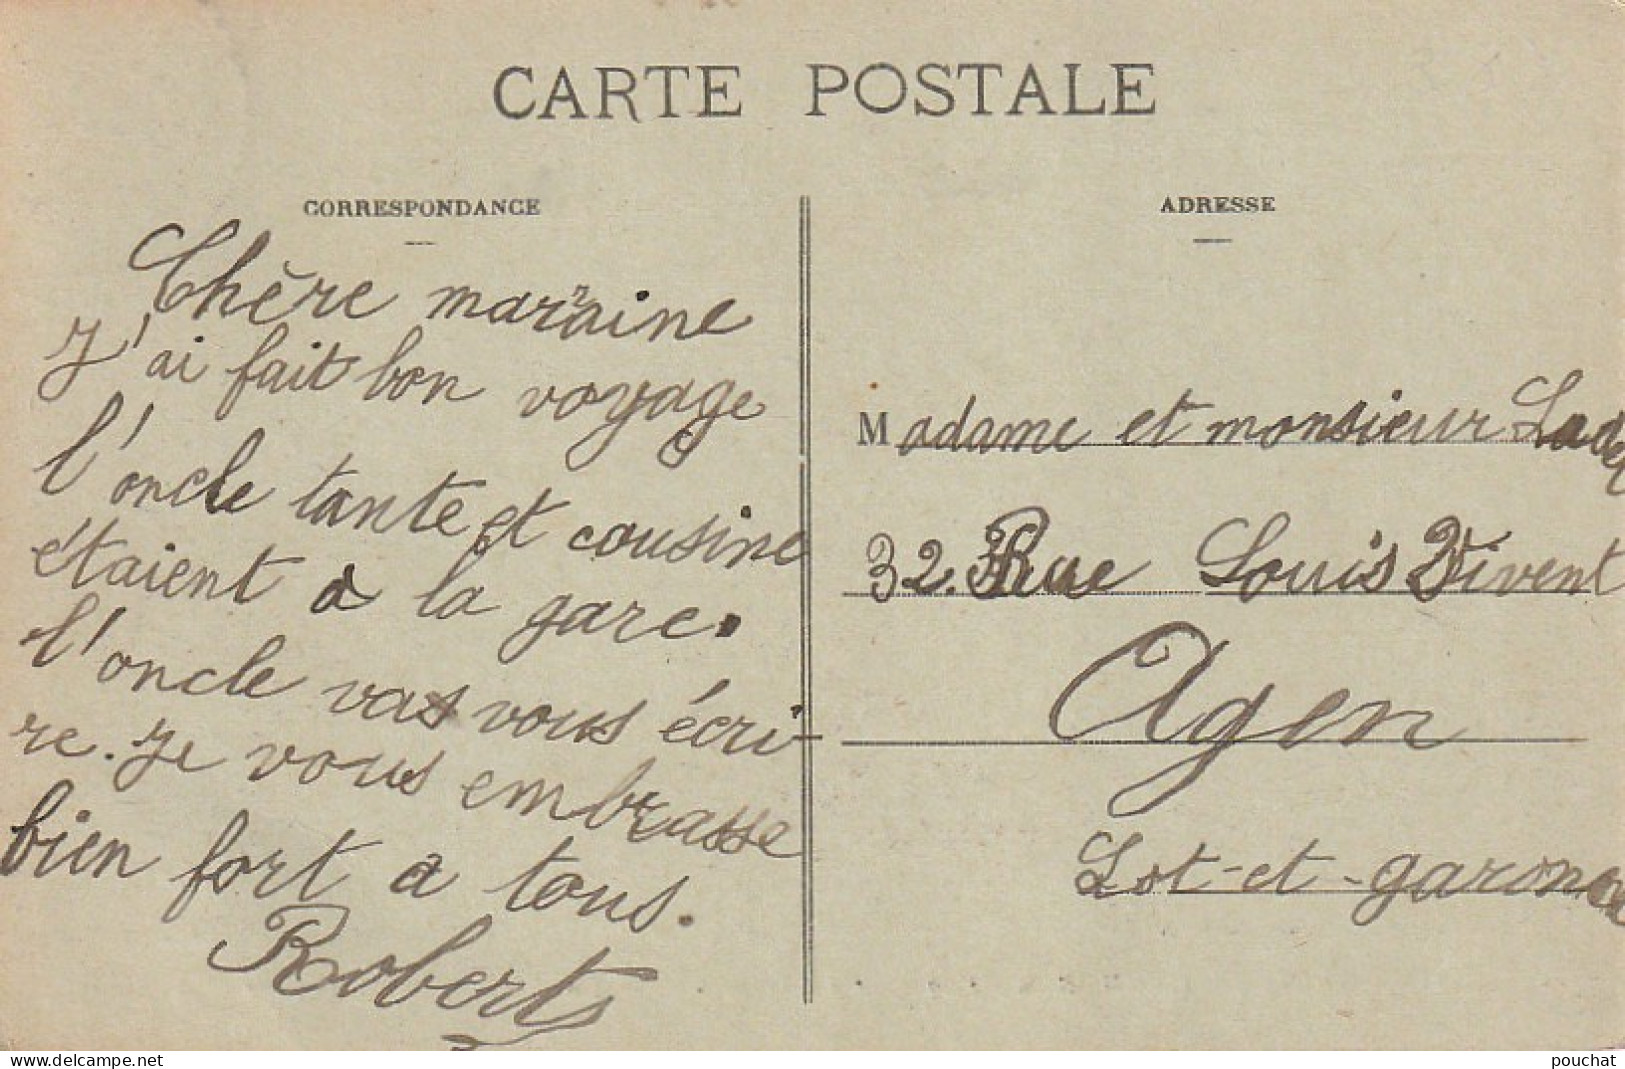 CARTE POSTALE
CORRESPONDANCE
Chère marraine
J'ai fait bon voyage
l'oncle tante et cousine
étaient a la gare.
l'oncle vas vous écri-
re. Je vous embrasse
bien fort a tous.
Robert
ADRESSE
Madame et monsieur
32. Rue Louis Vivent
Agen
Lot-et-garonne
www.delcampe.net
pouchat